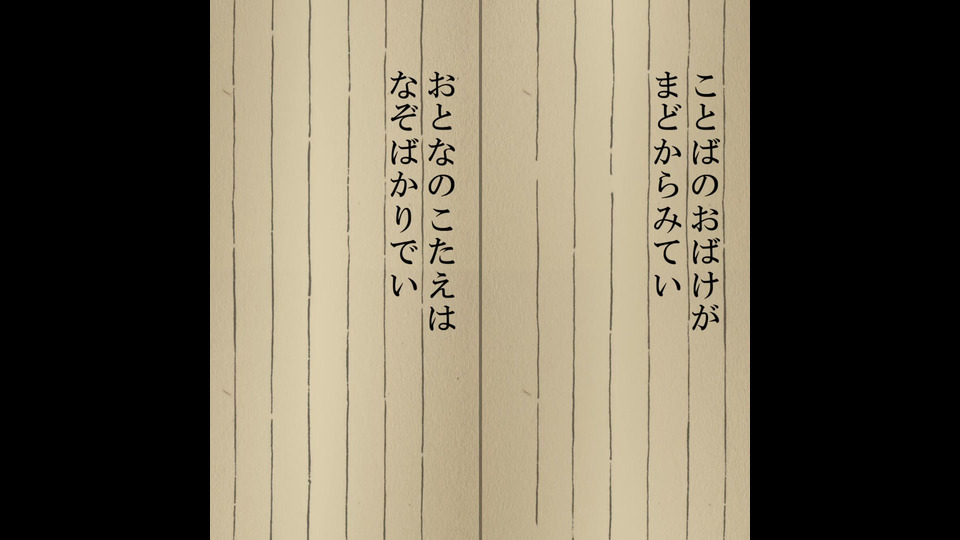 ことばのおばけが
まどからみてい
おとなのこたえは
なぞばかりでい